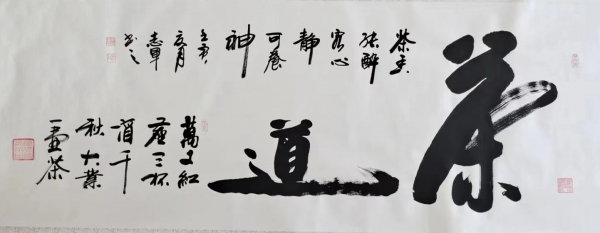 茶
道
茶香
能醉
客心
靜
可養
神
壬寅
月
志軍
书之
萬丈紅
塵三杯
酒千
秋大業
一壺茶